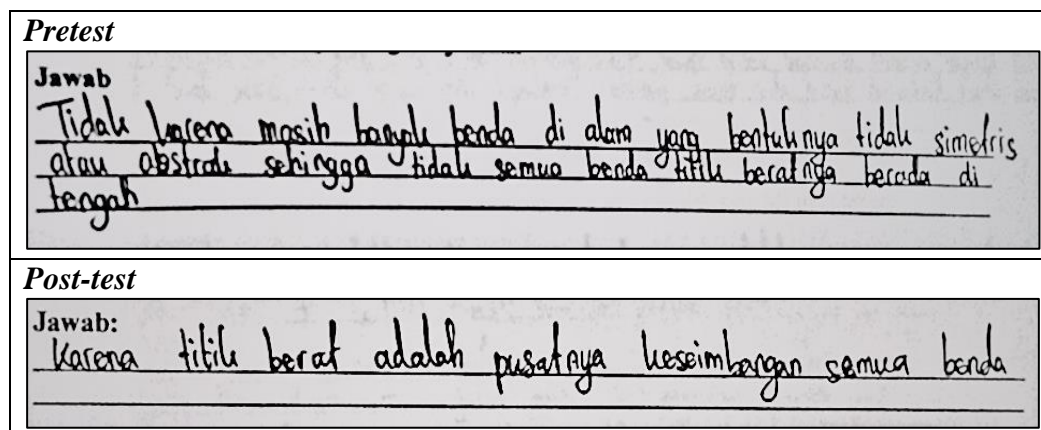 Pretest
Jawab
Tidak karena masih banyak benda di alam yang bentuknya tidak simetris
atau abstrak sehingga tidak semua benda titik beratnya berada di
tengah
Post-test
Jawab:
Karena titik berat adalah pusatnya keseimbangan semua benda